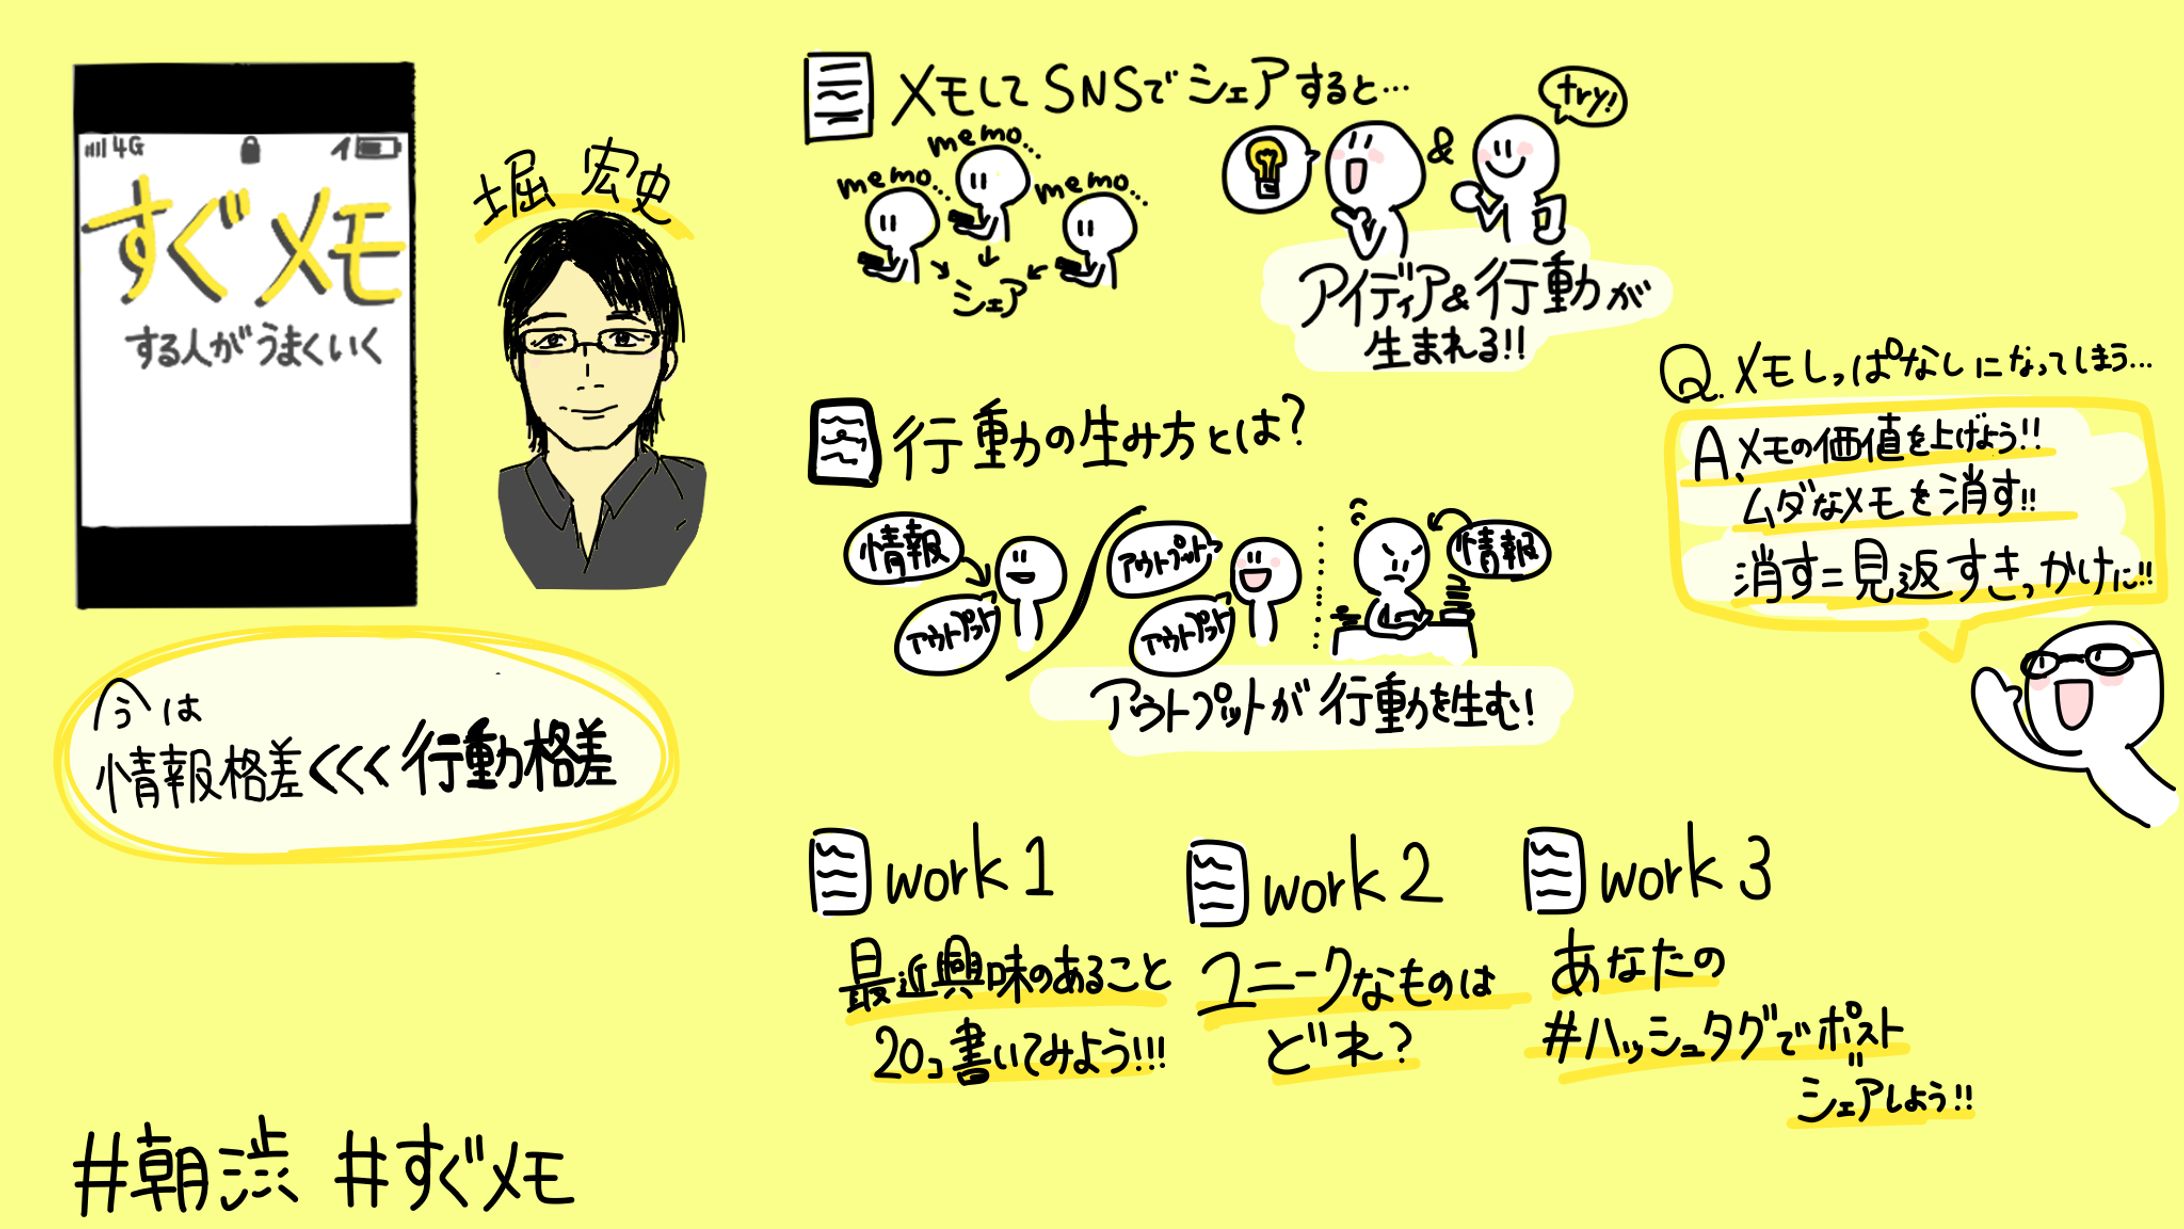 4G
すぐメモ
する人がうまくいく
堀 宏史
今は
情報格差<<<行動格差
#朝渋 #すぐメモ
メモしてSNSでシェアすると…
memo...
memo...
memo...
シェア
&
try!
アイディア&行動が
生まれる!!
行動の生み方とは?
情報
アウトプット
アウトプット
アウトプット
情報
アウトプットが行動を生む!
Q.メモしっぱなしになってしまう…
A.メモの価値を上げよう!!
ムダなメモを消す!!
消す=見返すきっかけに!!
work 1
最近興味のあること
20コ書いてみよう!!!
work 2
ユニークなものは
どれ?
work 3
あなたの
#ハッシュタグでポスト
=
シェアしよう!!